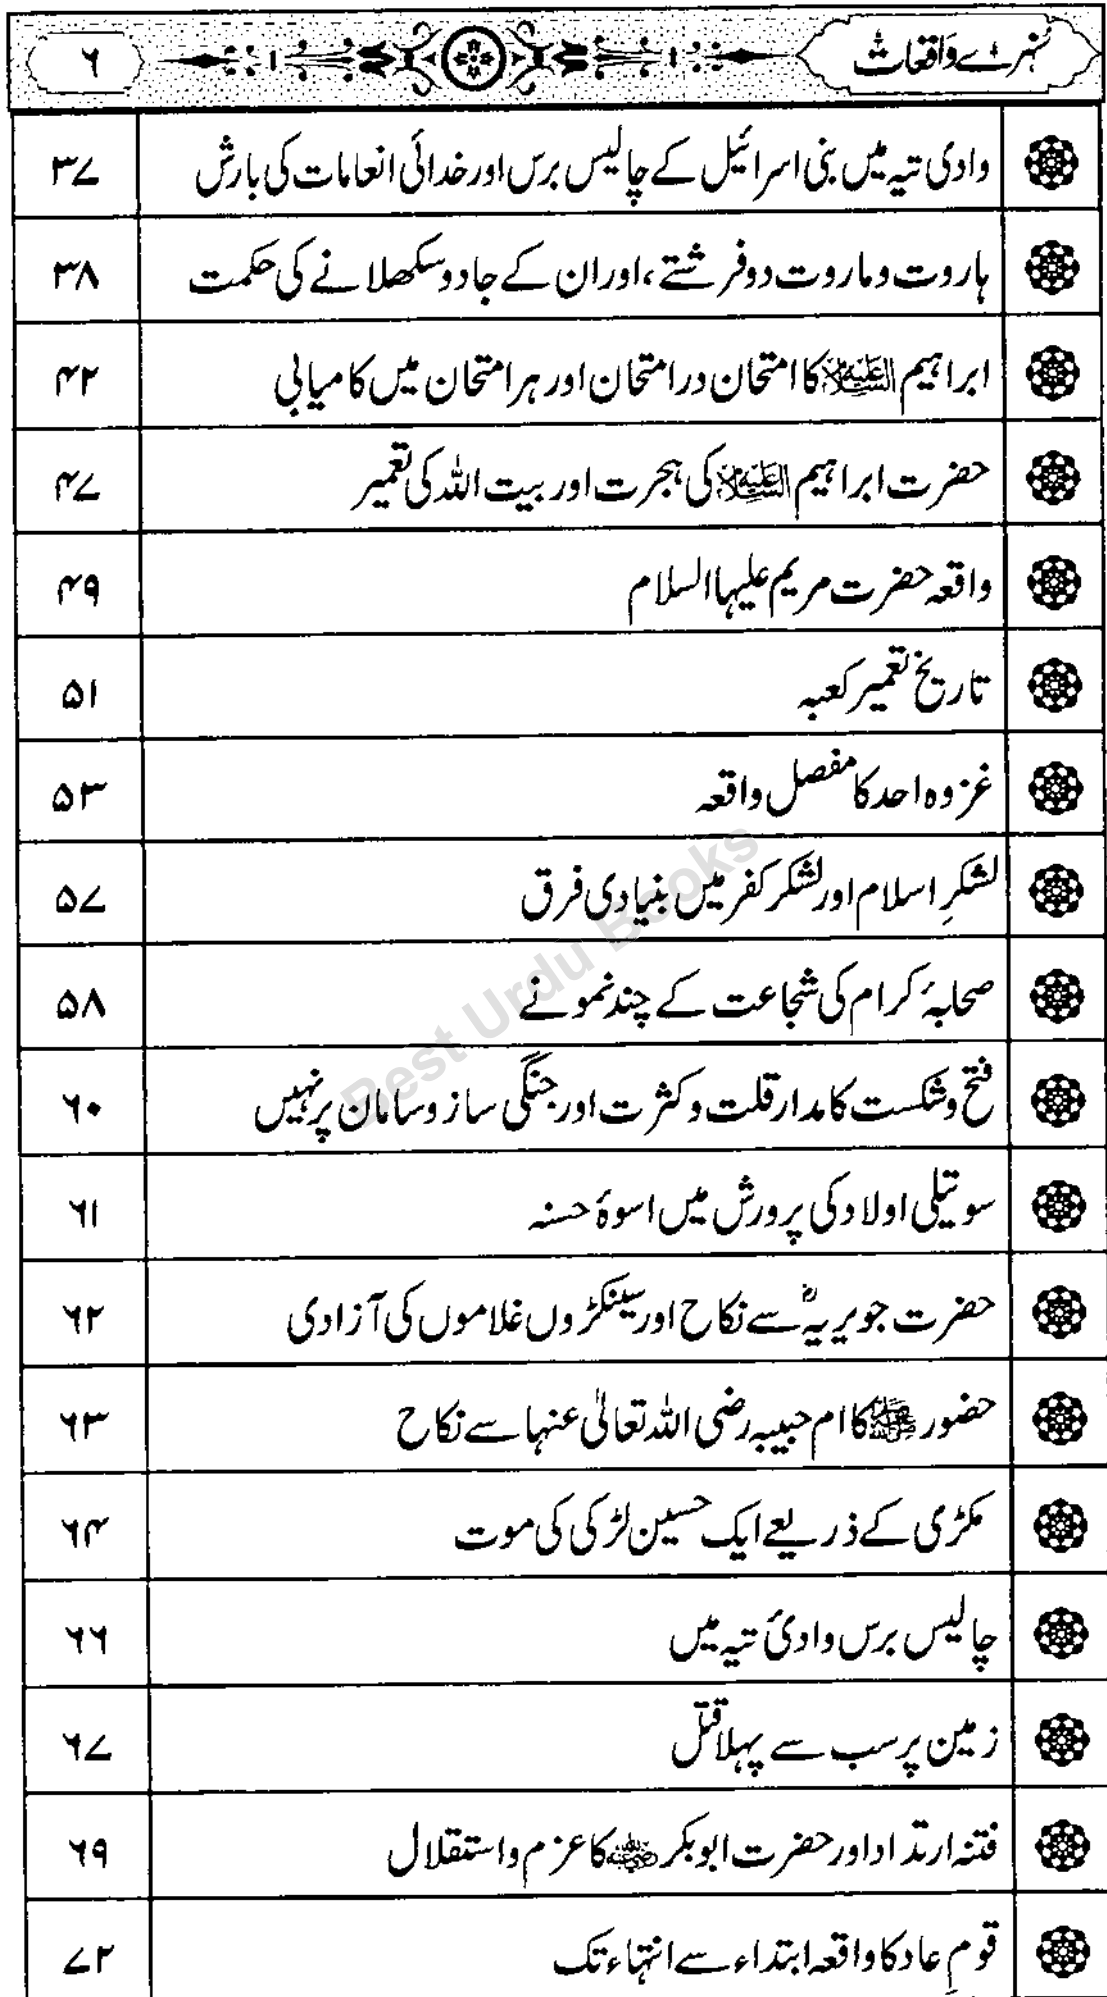 سُنہرے واقعات ٦
وادی تیہ میں بنی اسرائیل کے چالیس برس اور خدائی انعامات کی بارش ۳۷
ہاروت و ماروت دو فرشتے ، اور ان کے جادو سکھلانے کی حکمت ۳۸
ابراہیم علیہ السلام کا امتحان در امتحان اور ہر امتحان میں کامیابی ۴۲
حضرت ابراہیم علیہ السلام کی ہجرت اور بیت اللہ کی تعمیر ۴۷
واقعہ حضرت مریم علیہا السلام ۴۹
تاریخ تعمیر کعبہ ۵۱
غزوہ احد کا مفصل واقعہ ۵۳
لشکرِ اسلام اور لشکر کفر میں بنیادی فرق ۵۷
صحابۂ کرام کی شجاعت کے چند نمونے ۵۸
فتح و شکست کا مدار قلت و کثرت اور جنگی ساز و سامان پر نہیں ۶۰
سوتیلی اولاد کی پرورش میں اسوۂ حسنہ ۶۱
حضرت جویریہؓ سے نکاح اور سینکڑوں غلاموں کی آزادی ۶۲
حضور ﷺ کا ام حبیبہ رضی اللہ تعالیٰ عنہا سے نکاح ۶۳
مکڑی کے ذریعے ایک حسین لڑکی کی موت ۶۴
چالیس برس وادیٔ تیہ میں ۶۶
زمین پر سب سے پہلا قتل ۶۷
فتنہ ارتداد اور حضرت ابوبکر رضی اللہ عنہ کا عزم و استقلال ۶۹
قومِ عاد کا واقعہ ابتداء سے انتہاء تک ۷۲
Best Urdu Books